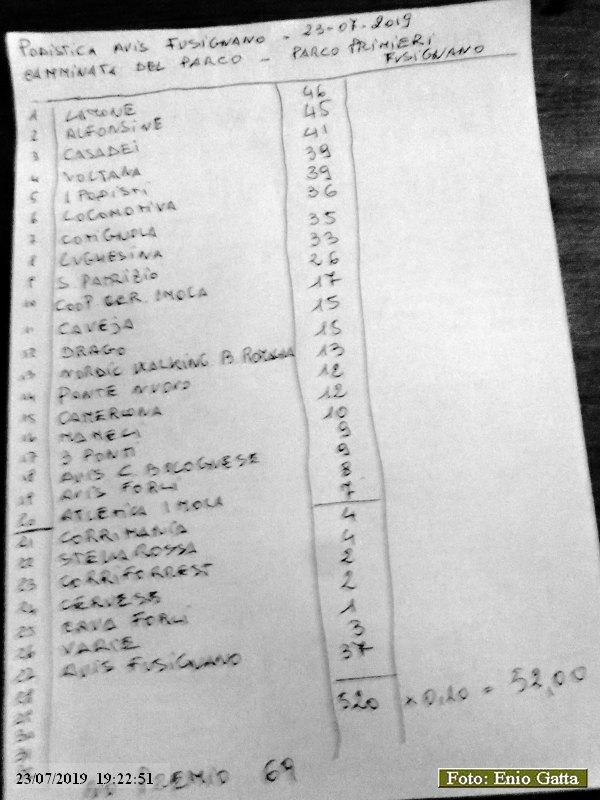 PODISTICA AVIS FUSIGNANO - 23-07-2019
CAMMINATA DEL PARCO - PARCO PRIMIERI
FUSIGNANO
1 LAMONE 46
2 ALFONSINE 45
3 CASADEI 41
4 VOLTANA 39
5 I PODISTI 39
6 LOCOMOTIVA 36
7 COTIGNOLA 35
8 LUGHESINA 33
9 S. PATRIZIO 26
10 COOP CER. IMOLA 17
11 CAVEJA 15
12 DRAGO 15
13 NORDIC WALKING B ROMAGNA 13
14 PONTE NUOVO 12
15 CAMERLONA 12
16 MAMELI 10
17 3 PONTI 9
18 AVIS C. BOLOGNESE 9
19 AVIS FORLI 8
20 ATLETICA IMOLA 7
21 CORRIMANIA 4
22 STELLA ROSSA 4
23 CORRIFORREST 2
24 CERVESE 2
25 CAVA FORLI 1
26 VARIE 3
27 AVIS FUSIGNANO 37
28
29
30
520 x 0,10 = 52,00
PREMIO 69
23/07/2019 19:22:51
Foto: Enio Gatta